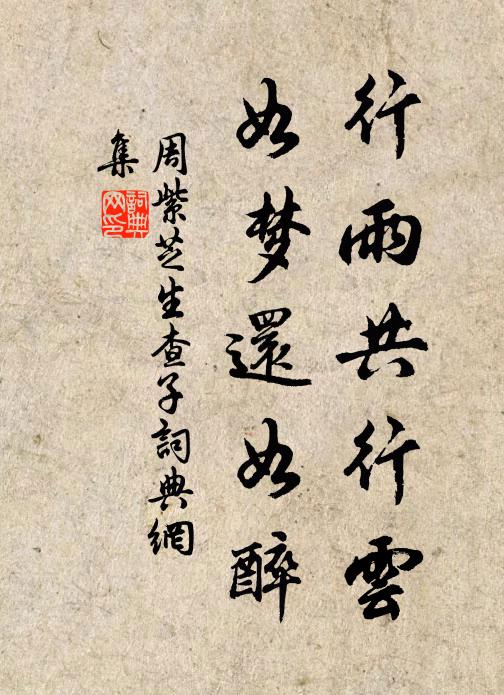 行雨共行雲
如梦還如醉
周紫芝生查子詞典網
集
詞典
网印